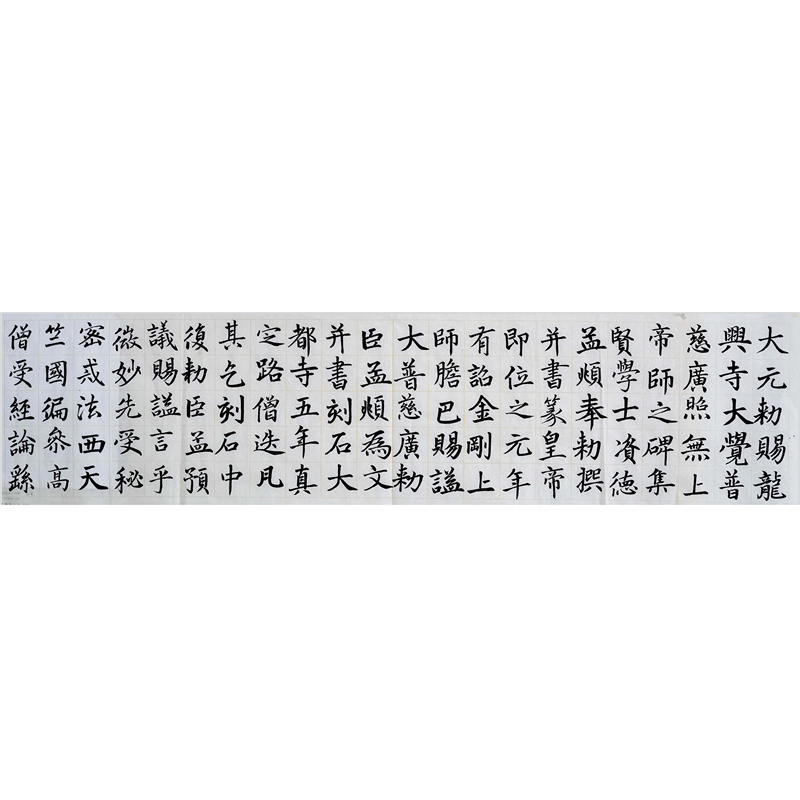 大元勅賜龍
興寺大覺普
慈廣照無上
帝師之碑集
賢學士資德
孟頫奉勅撰
并書篆皇帝
即位之元年
有詔金剛上
師膽巴賜謚
大普慈廣勅
臣孟頫為文
并書刻石大
都寺五年真
定路僧迭凡
其乞刻石中
復勅臣孟預
議賜謚言乎
微妙先受秘
密戒法西天
竺國徧參高
僧受經論繇